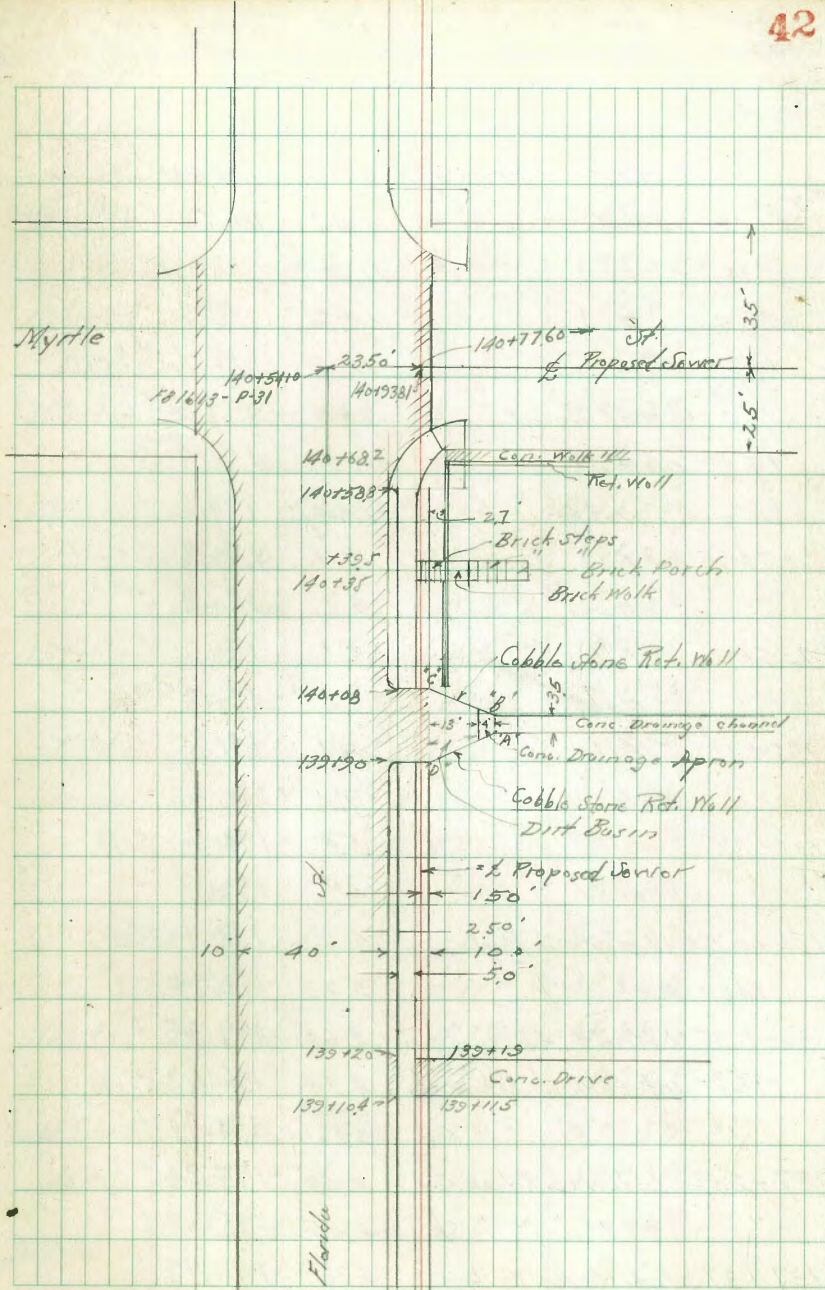 42
Myrtle
St.
35'
25'
140+77.60
23.50'
℄ Proposed Sewer
140+54.10
140+93.81
P-31
140+68.2
Conc. Walk
Ret. Wall
140+58.8
2.7
Brick Steps
+39.5
" Brick Porch
140+35
Brick Walk
Cobble Stone Ret. Wall
"C"
140+08
"B"
3.5
13'
4'
Conc. Drainage channel
"A"
Conc. Drainage Apron
139+90
"D"
Cobble Stone Ret. Wall
Dirt Basin
℄ Proposed Sewer
St.
1.50'
2.50'
10'
40'
10.0'
5.0'
139+20
139+19
Conc. Drive
139+10.4
139+11.5
Florida